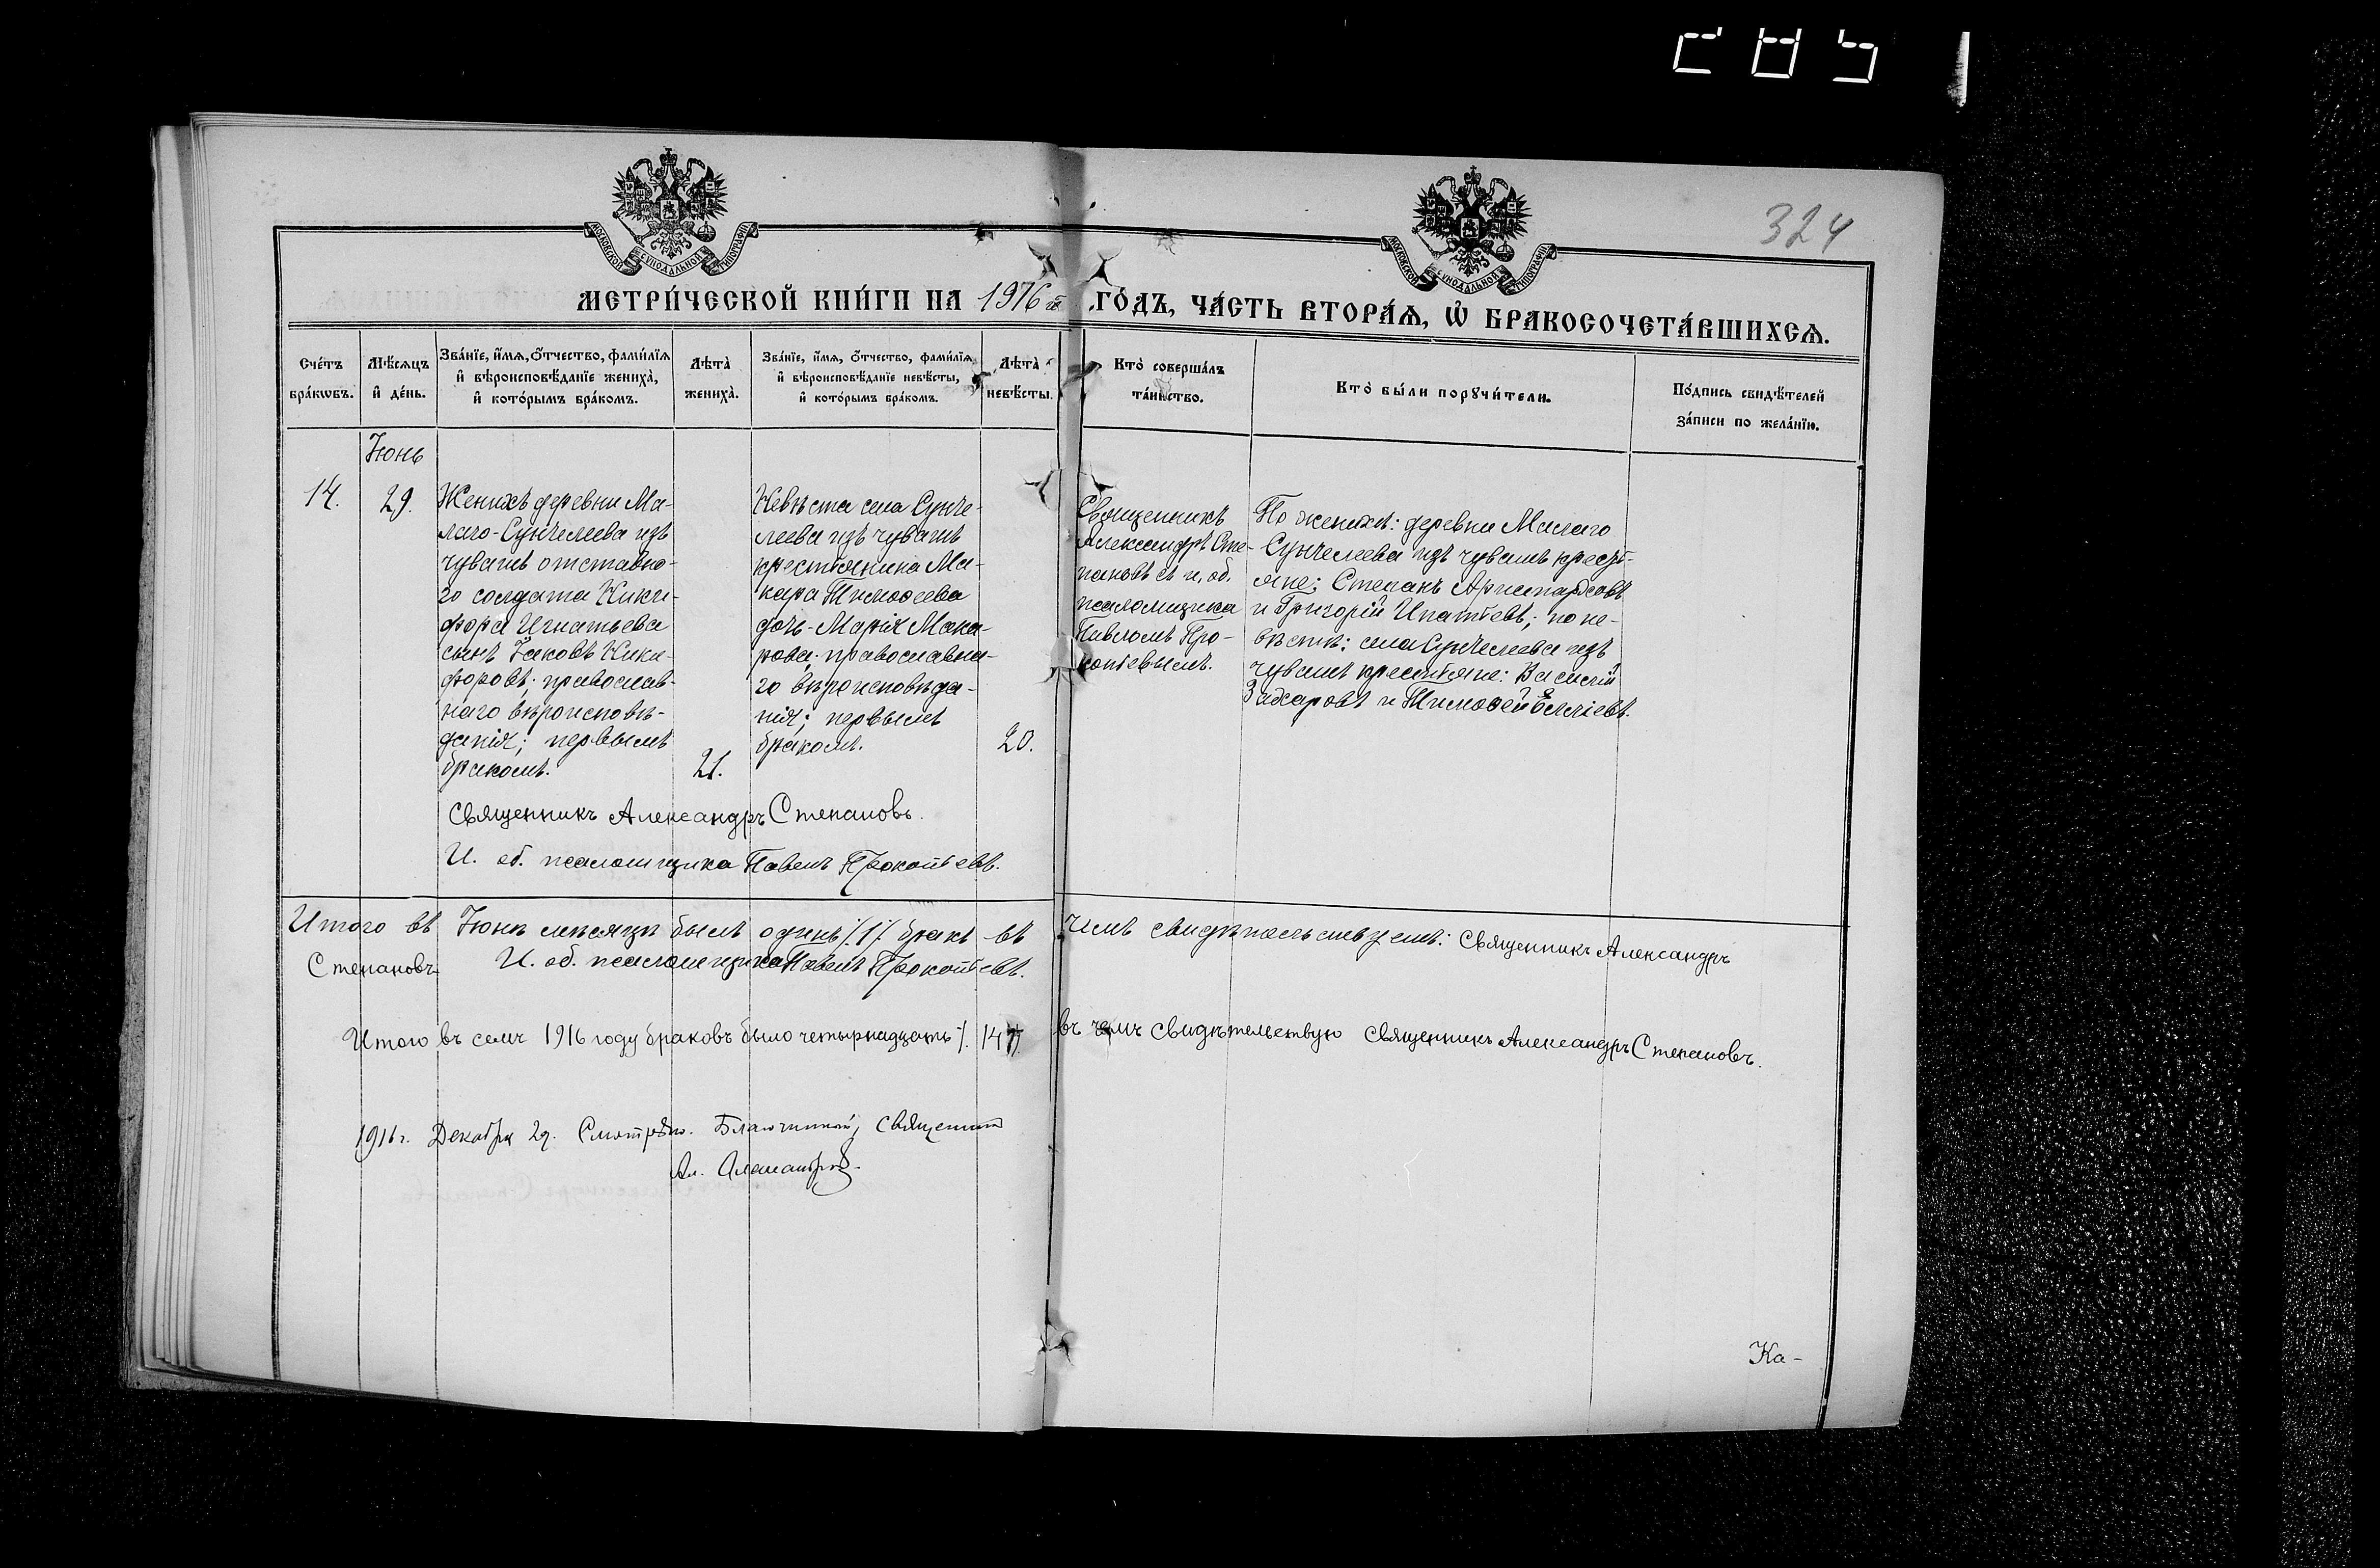 324
МОСКОВСКОЙ СѴНОДАЛЬНОЙ ТИПОГРАФІИ
МОСКОВСКОЙ СѴНОДАЛЬНОЙ ТИПОГРАФІИ
МЕТРИ́ЧЕСКОЙ КНИ́ГИ НА 1916 й ГО́ДЪ, ЧА́СТЬ ВТОРА́Ѧ, Ѡ҆ БРАКОСОЧЕТА́ВШИХСѦ.
Сче́тъ
бра́кѡвъ.
Мѣ́сѧцъ
и҆ де́нь.
Зва́нїе, и҆́мѧ, ѻ҆́тчество, фами́лїѧ
и҆ вѣроисповѣ́данїе жениха̀,
и҆ кото́рымъ бра́комъ.
Лѣта̀
жениха̀.
Зва́нїе, и҆́мѧ, ѻ҆́тчество, фами́лїѧ
и҆ вѣроисповѣ́данїе невѣ́сты,
и҆ кото́рымъ бра́комъ.
Лѣта̀
невѣ́сты.
Кто̀ соверша́лъ
та́инство.
Кто̀ бы́ли порꙋчи́тели.
По́дпись свидѣ́телей
за́писи по жела́нїю.
Іюнь
14.
29.
Женихъ деревни Ма-
лаго-Сунчелеева изъ
чувашъ отставно-
го солдата Ники-
фора Игнатьева
сынъ Іаковъ Ники-
форовъ; православ-
наго вѣроисповѣ-
данія; первымъ
бракомъ.
21.
Невѣста села Сунче-
леева изъ чувашъ
крестьянина Ма-
кара Тимоѳеева
дочь-Марія Мака-
рова; православна-
го вѣроисповѣда-
нія; первымъ
бракомъ.
20.
Священникъ
Александръ Сте-
пановъ съ и. об.
псаломщика
Павломъ Про-
копьевымъ.
По женихѣ: деревни Малаго
Сунчелеева изъ чувашъ кресть-
яне: Степанъ Аристарховъ
и Григорій Ипатьевъ; по не-
вѣстѣ: села Сунчелеева изъ
чувашъ крестьяне: Василій
Захаровъ и Тимоѳей
Священникъ Александръ Степановъ.
И. об. псаломщика Павелъ Прокопьевъ.
Итого въ Іюнѣ мѣсяцѣ былъ одинъ /1/ бракъ въ чемъ свидѣтельствуемъ: Священникъ Александръ
Степановъ И. об. псаломщика Павелъ Прокопьевъ.
Итого въ семъ 1916 году браковъ было четырнадцать /14/ въ чемъ свидѣтельствую Священникъ Александръ Степановъ.
1916 г. Декабря 29. Смотрѣлъ. Благочинный, Священникъ
Ал.
Ка-